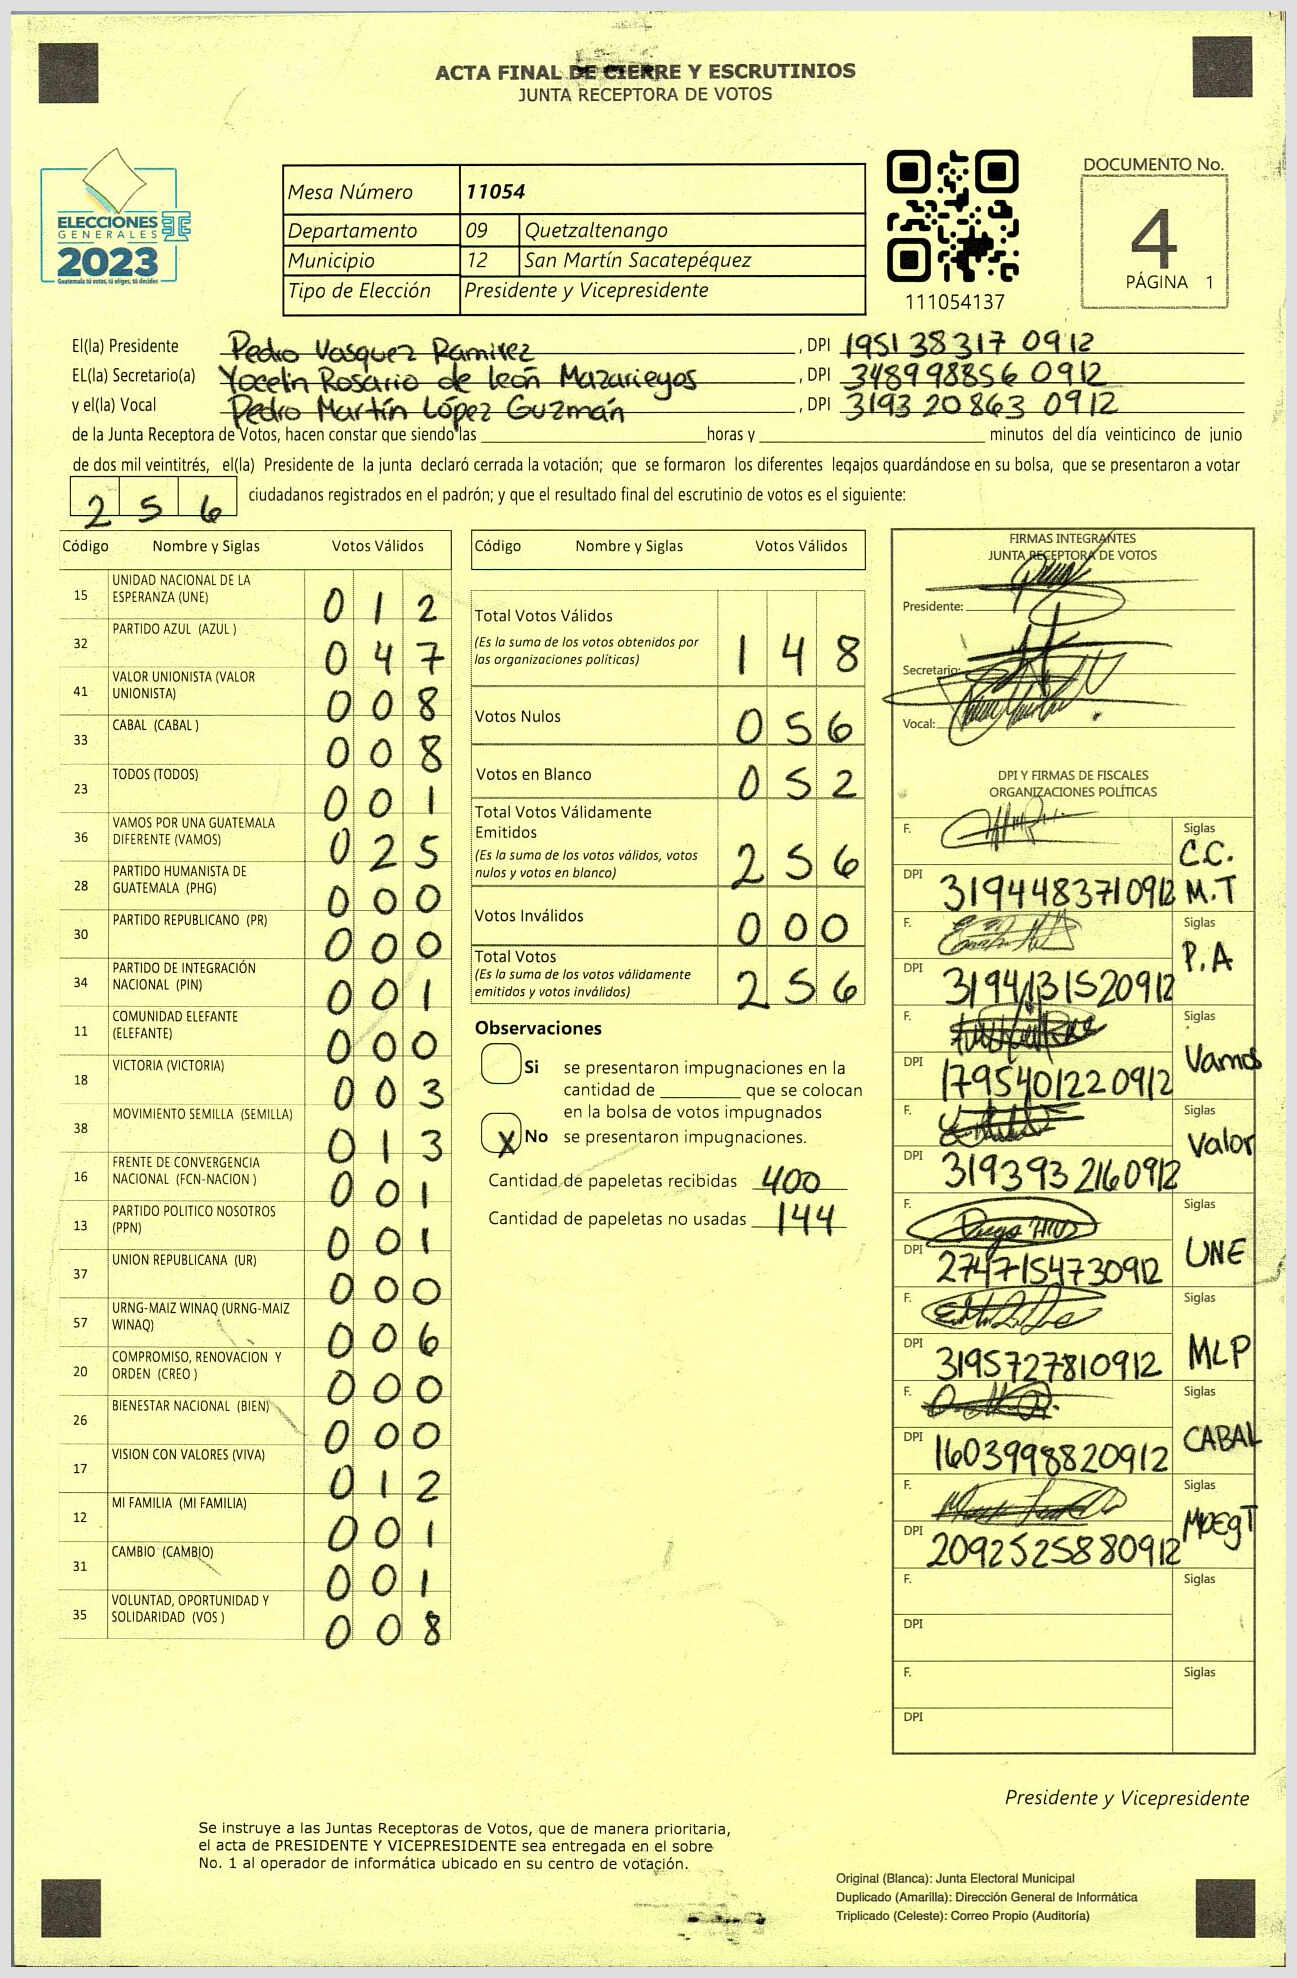 ACTA FINAL DE CIERRE Y ESCRUTINIOS
JUNTA RECEPTORA DE VOTOS
ELECCIONES
GENERALES
2023
Guatemala tú votas, tú eliges, tú decides
Mesa Número 11054
Departamento 09 Quetzaltenango
Municipio 12 San Martín Sacatepéquez
Tipo de Elección Presidente y Vicepresidente
111054137
DOCUMENTO No.
4
PÁGINA 1
El(la) Presidente Pedro Vasquez Ramirez , DPI 195138317 0912
EL(la) Secretario(a) Yocelin Rosario de león Mazariegos , DPI 348998856 0912
y el(la) Vocal Pedro Martín López Guzmán , DPI 319320863 0912
de la Junta Receptora de Votos, hacen constar que siendo las horas y minutos del día veinticinco de junio
de dos mil veintitrés, el(la) Presidente de la junta declaró cerrada la votación; que se formaron los diferentes legajos guardándose en su bolsa, que se presentaron a votar
256 ciudadanos registrados en el padrón; y que el resultado final del escrutinio de votos es el siguiente:
Código Nombre y Siglas Votos Válidos
15 UNIDAD NACIONAL DE LA ESPERANZA (UNE) 012
32 PARTIDO AZUL (AZUL ) 047
41 VALOR UNIONISTA (VALOR UNIONISTA) 008
33 CABAL (CABAL ) 008
23 TODOS (TODOS) 001
36 VAMOS POR UNA GUATEMALA DIFERENTE (VAMOS) 025
28 PARTIDO HUMANISTA DE GUATEMALA (PHG) 000
30 PARTIDO REPUBLICANO (PR) 000
34 PARTIDO DE INTEGRACIÓN NACIONAL (PIN) 001
11 COMUNIDAD ELEFANTE (ELEFANTE) 000
18 VICTORIA (VICTORIA) 003
38 MOVIMIENTO SEMILLA (SEMILLA) 013
16 FRENTE DE CONVERGENCIA NACIONAL (FCN-NACION ) 001
13 PARTIDO POLITICO NOSOTROS (PPN) 001
37 UNION REPUBLICANA (UR) 000
57 URNG-MAIZ WINAQ (URNG-MAIZ WINAQ) 006
20 COMPROMISO, RENOVACION Y ORDEN (CREO ) 000
26 BIENESTAR NACIONAL (BIEN) 000
17 VISION CON VALORES (VIVA) 012
12 MI FAMILIA (MI FAMILIA) 001
31 CAMBIO (CAMBIO) 001
35 VOLUNTAD, OPORTUNIDAD Y SOLIDARIDAD (VOS ) 008
Código Nombre y Siglas Votos Válidos
Total Votos Válidos 148
(Es la suma de los votos obtenidos por
las organizaciones políticas)
Votos Nulos 056
Votos en Blanco 052
Total Votos Válidamente
Emitidos 256
(Es la suma de los votos válidos, votos
nulos y votos en blanco)
Votos Inválidos 000
Total Votos 256
(Es la suma de los votos válidamente
emitidos y votos inválidos)
Observaciones
Si se presentaron impugnaciones en la
cantidad de que se colocan
en la bolsa de votos impugnados
X No se presentaron impugnaciones.
Cantidad de papeletas recibidas 400
Cantidad de papeletas no usadas 144
FIRMAS INTEGRANTES
JUNTA RECEPTORA DE VOTOS
Presidente:
Secretario:
Vocal:
DPI Y FIRMAS DE FISCALES
ORGANIZACIONES POLÍTICAS
F. Siglas C.C. M.T
DPI 3194483710912
F. Siglas P.A
DPI 3194131520912
F. Siglas Vamos
DPI 1795401220912
F. Siglas Valor
DPI 3193932160912
F. Siglas UNE
DPI 2747154730912
F. Siglas MLP
DPI 3195727810912
F. Siglas CABAL
DPI 1603998820912
F. Siglas
DPI 2092525880912
F. Siglas
DPI
F. Siglas
DPI
Presidente y Vicepresidente
Se instruye a las Juntas Receptoras de Votos, que de manera prioritaria,
el acta de PRESIDENTE Y VICEPRESIDENTE sea entregada en el sobre
No. 1 al operador de informática ubicado en su centro de votación.
Original (Blanca): Junta Electoral Municipal
Duplicado (Amarilla): Dirección General de Informática
Triplicado (Celeste): Correo Propio (Auditoría)